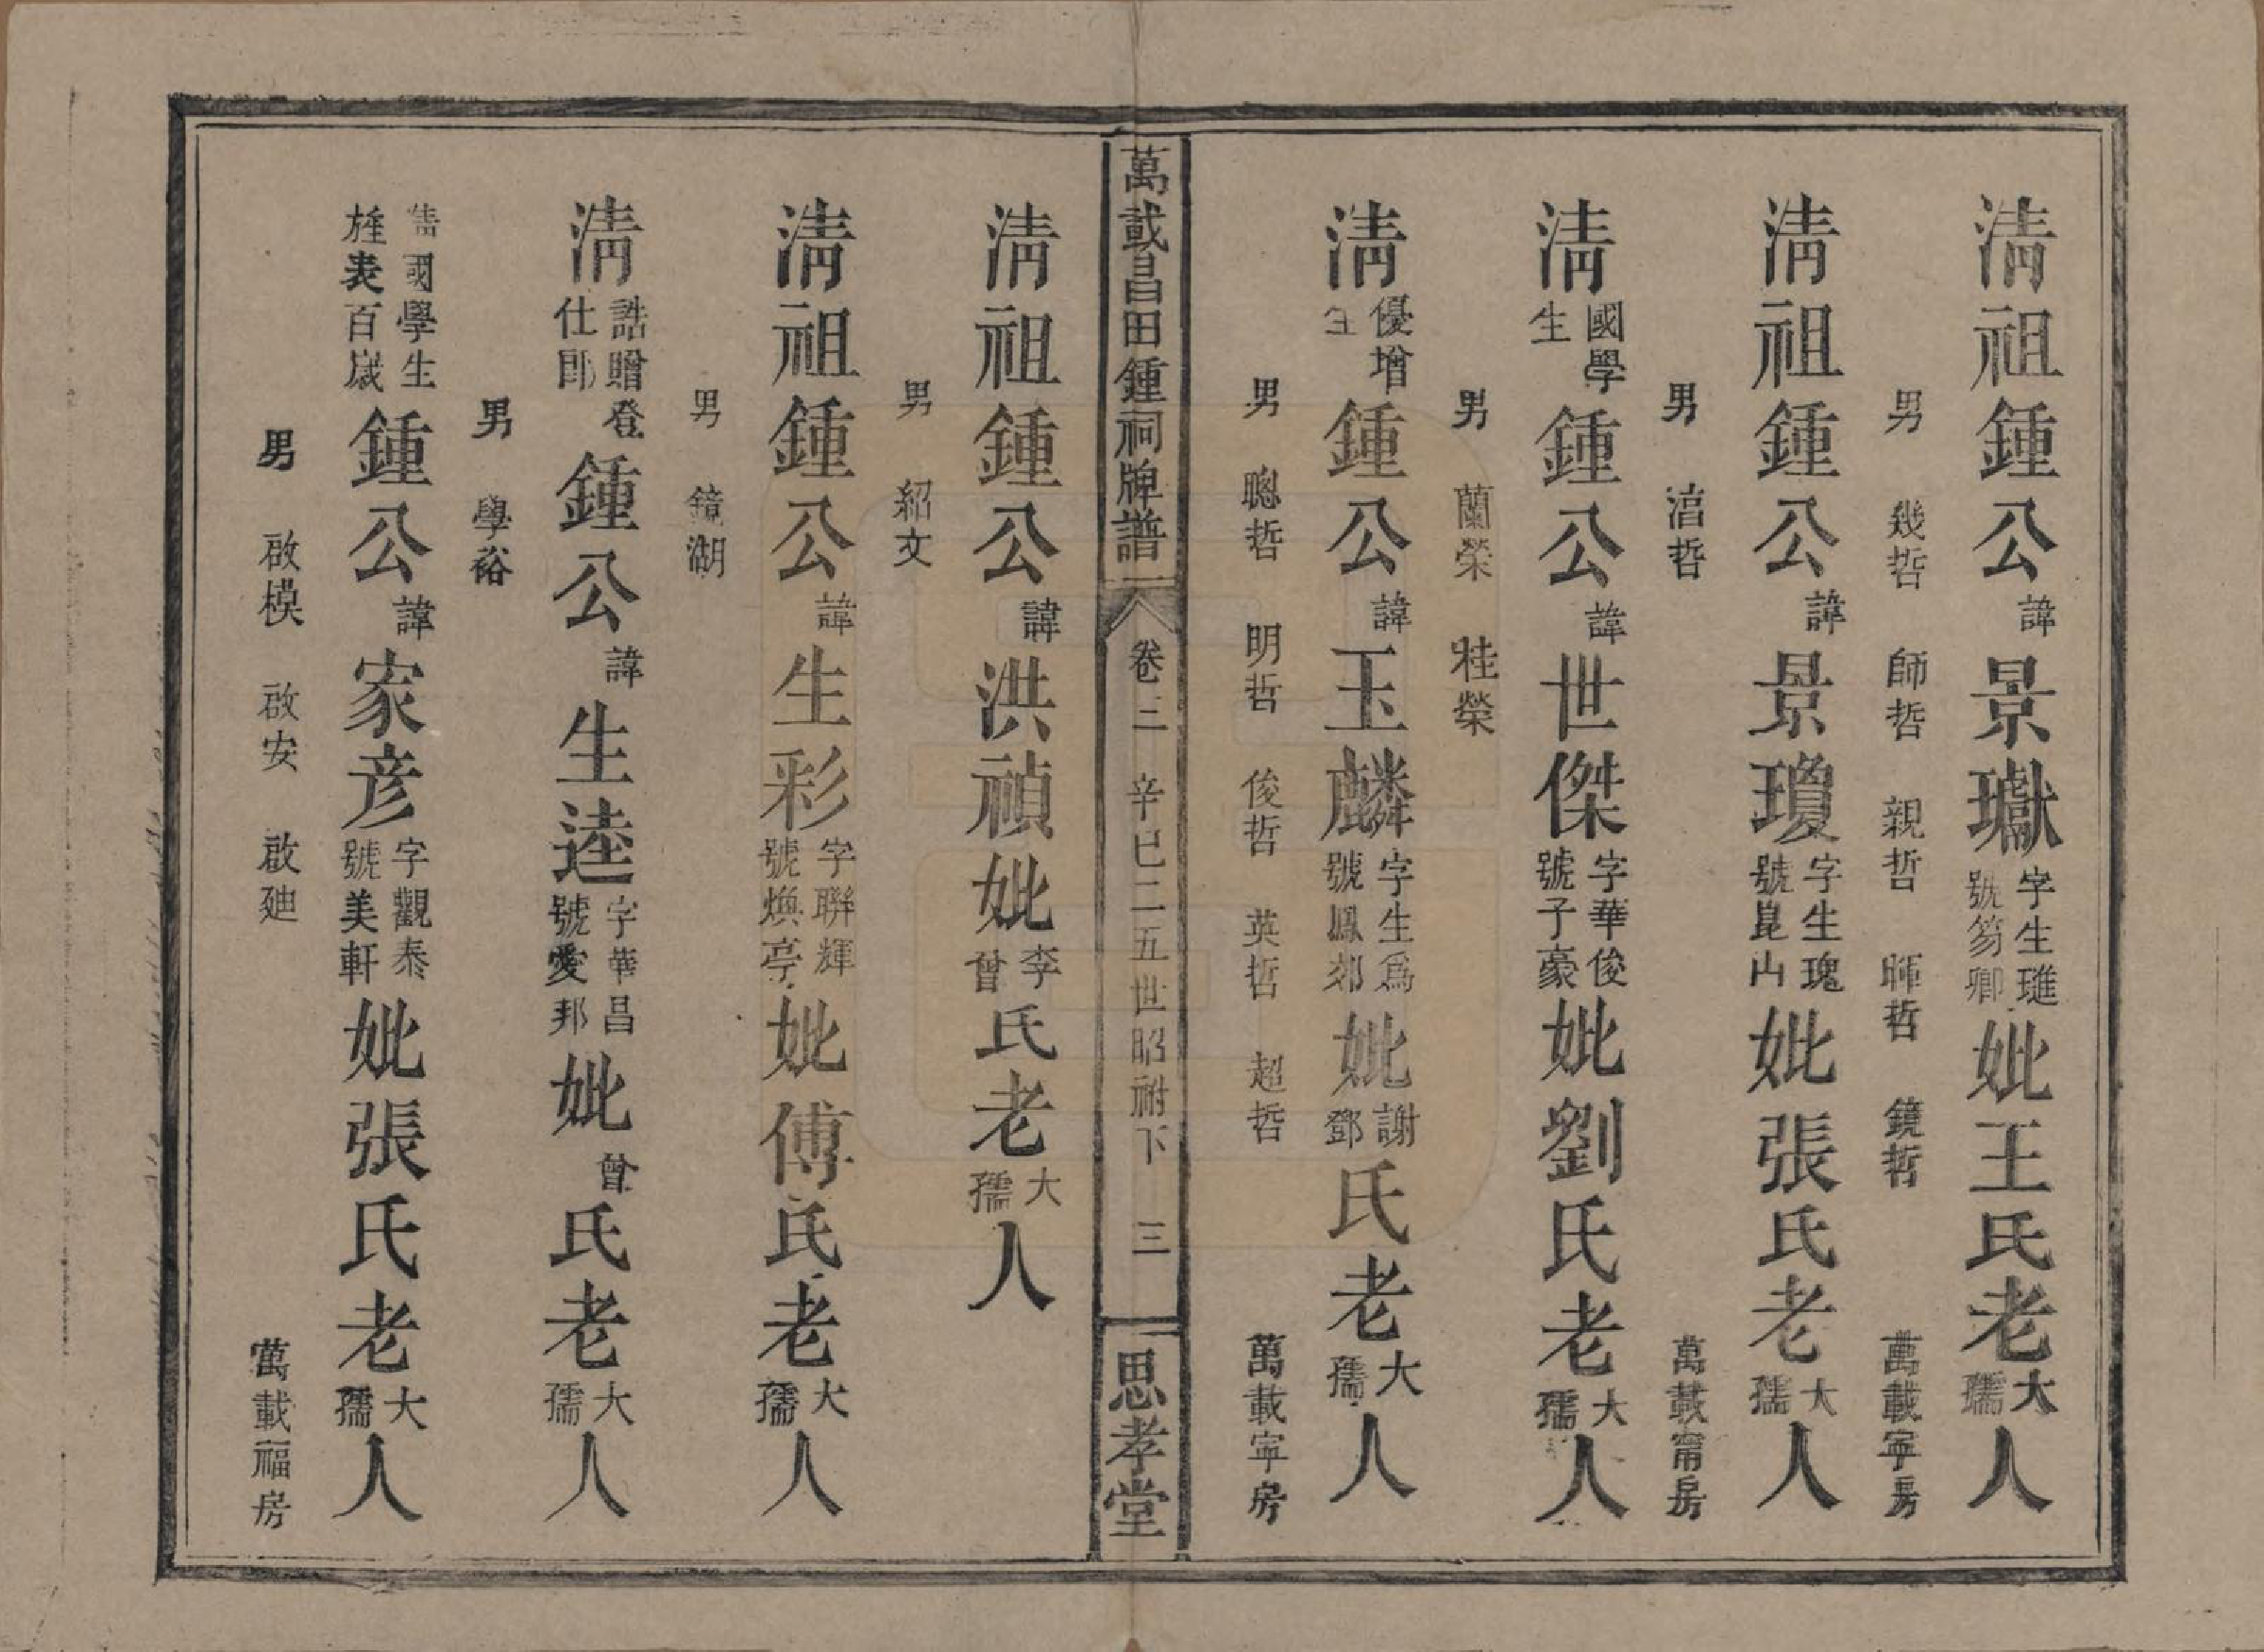 清祖鍾公諱景瓛字生璡號笏卿妣王氏老大孺人
男 幾哲 師哲 親哲 暉哲 鏡哲 萬載寧房
清祖鍾公諱景瓊字生瑰號崑山妣張氏老大孺人
男 㴠哲 萬載甯房
清國學生鍾公諱世傑字華俊號子豪妣劉氏老大孺人
男 蘭榮 桂榮
清優增生鍾公諱玉麟字生爲號鳳郊妣謝鄧氏老大孺人
男 聰哲 明哲 俊哲 英哲 超哲 萬載寧房
萬載昌田鍾祠牌譜 卷三 辛巳二五世昭祔下 三 思孝堂
清祖鍾公諱洪禎妣李曾氏老大孺人
男 紹文
清祖鍾公諱生彩字聯輝號煥亭妣傅氏老大孺人
男 鏡湖
清誥贈登仕郎鍾公諱生逵字華昌號愛邦妣曾氏老大孺人
男 學裕
清國學生旌表百歲鍾公諱家彥字觀泰號美軒妣張氏老大孺人
男 啟模 啟安 啟廸 萬載福房